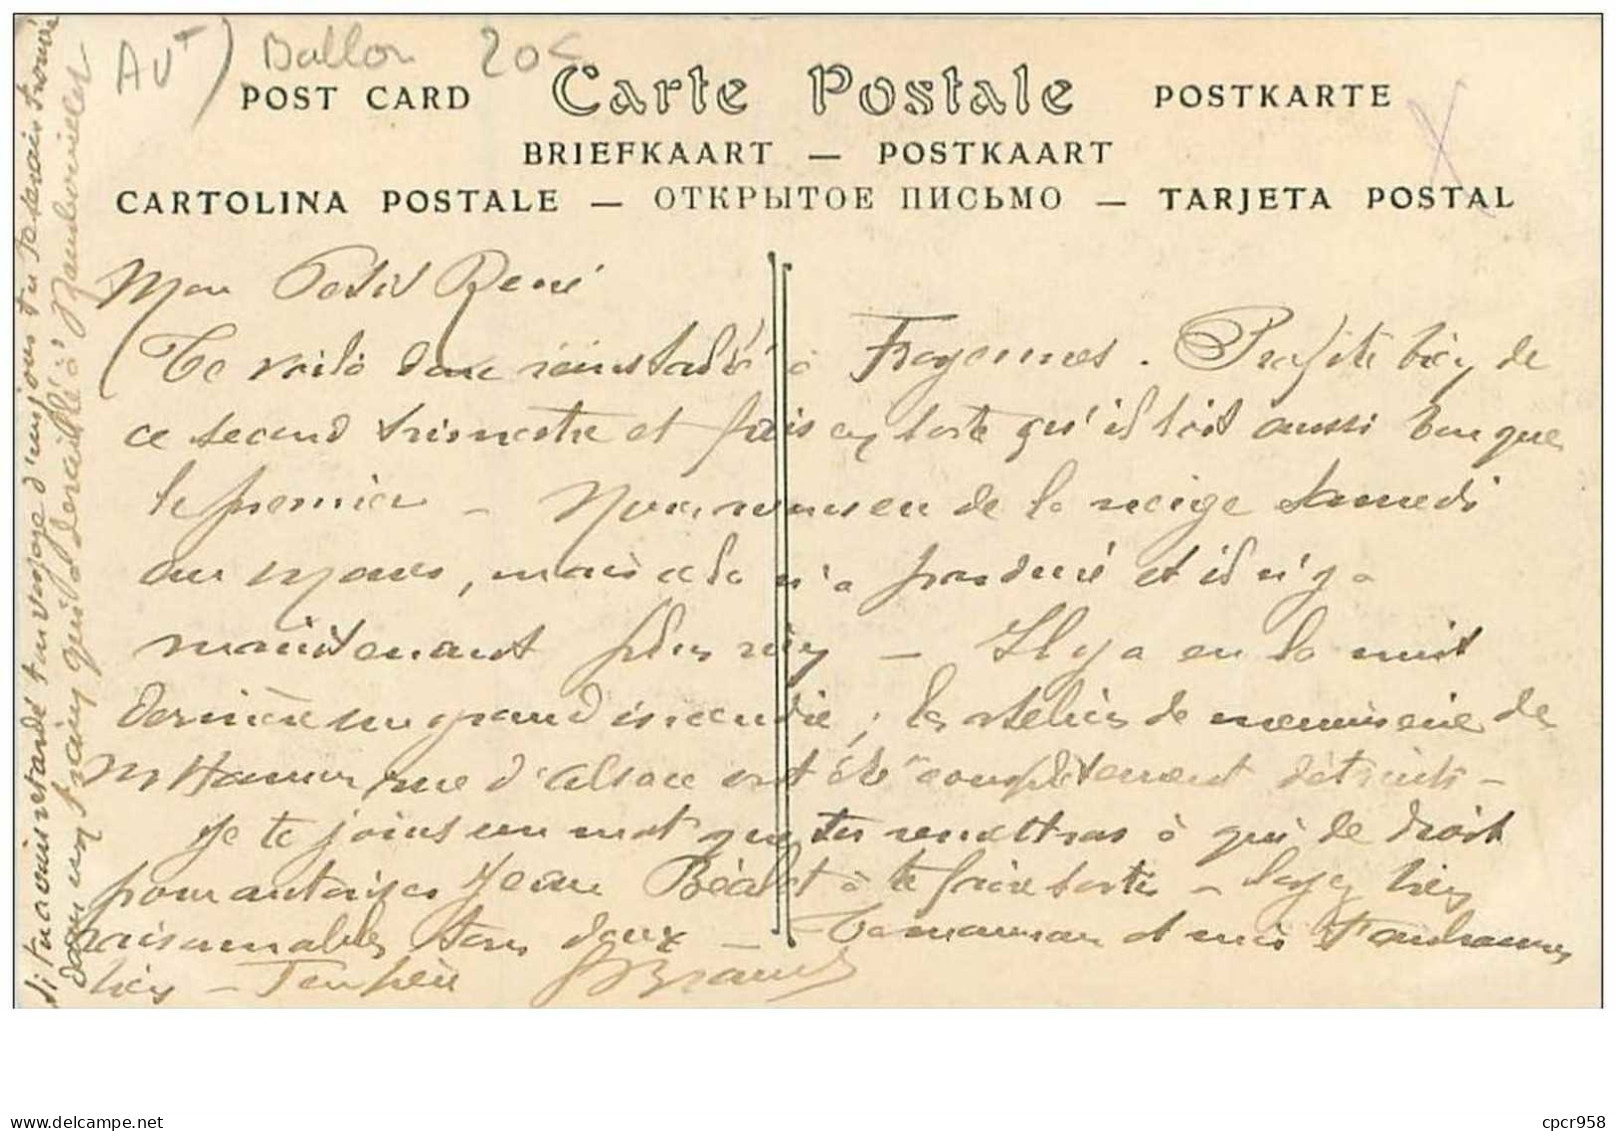 Avt) Ballon 20c
POST CARD Carte Postale POSTKARTE
BRIEFKAART — POSTKAART
CARTOLINA POSTALE — ОТКРЫТОЕ ПИСЬМО — TARJETA POSTAL
Mon Petit René
Te voilà donc réinstallé à Froyennes. Profite bien de
ce second trimestre et fais en sorte qu'il soit aussi bon que
le premier – Nous avons eu de la neige Samedi
au Mans, mais cela n'a pas duré et il n'y a
maintenant plus rien – Il y a eu la nuit
dernière un grand incendie, les ateliers de menuiserie de
Mr rue d'Alsace ont été complètement détruits –
Je te joins un mot que tu remettras à qui de droit
pour autoriser Jean à te faire sortir – Soyez bien
raisonnables tous deux – Ta maman et moi t'embrassons
bien – Ton père
si tu avais retardé ton voyage d'un jour tu te serais trouvé
dans un train qui a déraillé à
cpcr958